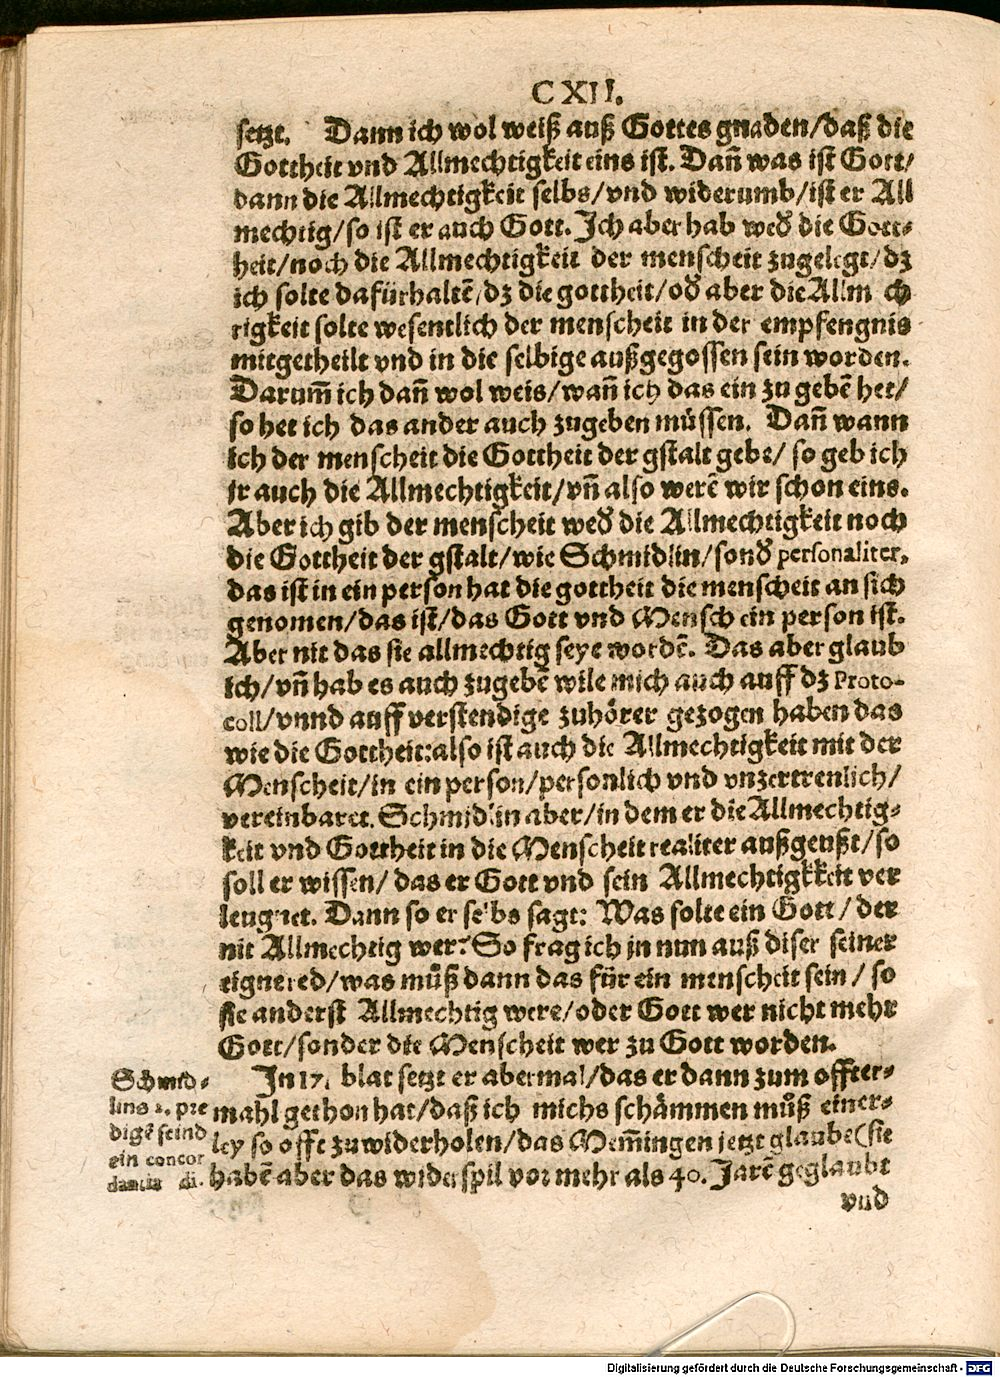 CXII.
setzt. Dann ich wol weiß auß Gottes gnaden/daß die
Gottheit vnd Allmechtigkeit eins ist. Dañ was ist Gott/
dann die Allmechtigkeit selbs/vnd widerumb/ist er All
mechtig/so ist er auch Gott. Ich aber hab wed᷒ die Gott-
heit/noch die Allmechtigkeit der menscheit zugelegt/dz
ich solte dafürhaltē/dz die gottheit/od᷒ aber die Allm ch
tigkeit solte wesentlich der menscheit in der empfengnis
mitgetheilt vnd in die selbige außgegossen sein worden.
Darum̃ ich dañ wol weis/wañ ich das ein zu gebē het/
so het ich das ander auch zugeben müssen. Dañ wann
ich der menscheit die Gottheit der gstalt gebe/ so geb ich
jr auch die Allmechtigkeit/vñ also werē wir schon eins.
Aber ich gib der menscheit wed᷒ die Allmechtigkeit noch
die Gottheit der gstalt/wie Schmidlin/sond᷒ personaliter,
das ist in ein person hat die gottheit die menscheit an sich
genomen/das ist/das Gott vnd Mensch ein person ist.
Aber nit das sie allmechtig seye wordē. Das aber glaub
ich/vñ hab es auch zugebē wile mich auch auff dz Proto-
coll/vnnd auff verstendige zuhörer gezogen haben das
wie die Gottheit:also ist auch die Allmechtigkeit mit der
Menscheit/in ein person/personlich vnd vnzertrenlich/
vereinbaret. Schmidlin aber/in dem er die Allmechtig-
keit vnd Gottheit in die Menscheit realiter außgeußt/so
soll er wissen/ das er Gott vnd sein Allmechtigkkeit ver
leugnet. Dann so er selbs sagt: Was solte ein Gott/ der
nit Allmechtig wer? So frag ich jn nun auß diser seiner
eignered/was můß dann das für ein menscheit sein/ so
sie anderst Allmechtig were/oder Gott wer nicht mehr
Gott/sonder die Menscheit wer zu Gott worden.
In 17. blat setzt er abermal/das er dann zum offter-
mahl gethon hat/daß ich michs schämmen můß einer-
ley so offt zuwiderholen/das Mem̃ingen jetzt glaube(sie
habē aber das widerspil vor mehr als 40. Jarē geglaubt
vnd
Schmid-
lins 2. pre
digē seind
ein concor
dantia di.
Digitalisierung gefördert durch die Deutsche Forschungsgemeinschaft - DFG